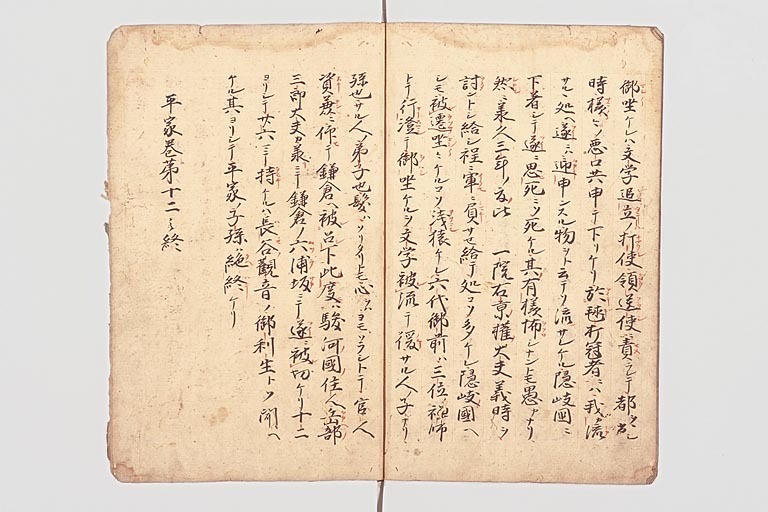 御坐ケレハ文学追立ノ打使領送使ニ責ラレテ都ヲ出
時様々ノ悪口共申テ下リケリ於毬打冠者ニハ我カ流
サル処ヘ遂ニ迎申ンスル物ヲト云テソ流サレケル隠岐國ニ
下着シテ遂ニ思死ニソ死ケル其有様怖シナントモ愚ナリ
然ニ承久三年ノ夏比 一院右京權大夫義時ヲ
討ントシ給シ程ニ軍ニ負サセ給テ処コソ多ケレ隠岐國ヘ
シモ被遷坐ニケルコソ浅猿ケレ六代御前ハ三位ノ禅師
トテ行澄テ御坐ケルヲ文学被流テ後サル人ノ子ナリ
孫也サル人ノ弟子也髪ハソリタリトモ心ハヨモソラシトテ官人
資兼ニ仰テ鎌倉ヘ被召下此度ハ駿河國住人岳部
三郎大夫カ承ニテ鎌倉ノ六浦坂ニテ遂ニ被切ケリ十二
ヨリシテ廿六ニテ持ケルハ長谷觀音ノ御利生トソ聞ヘ
ケル其ヨリシテ平家ノ子孫ハ絶終ケリ
平家巻第十二之終